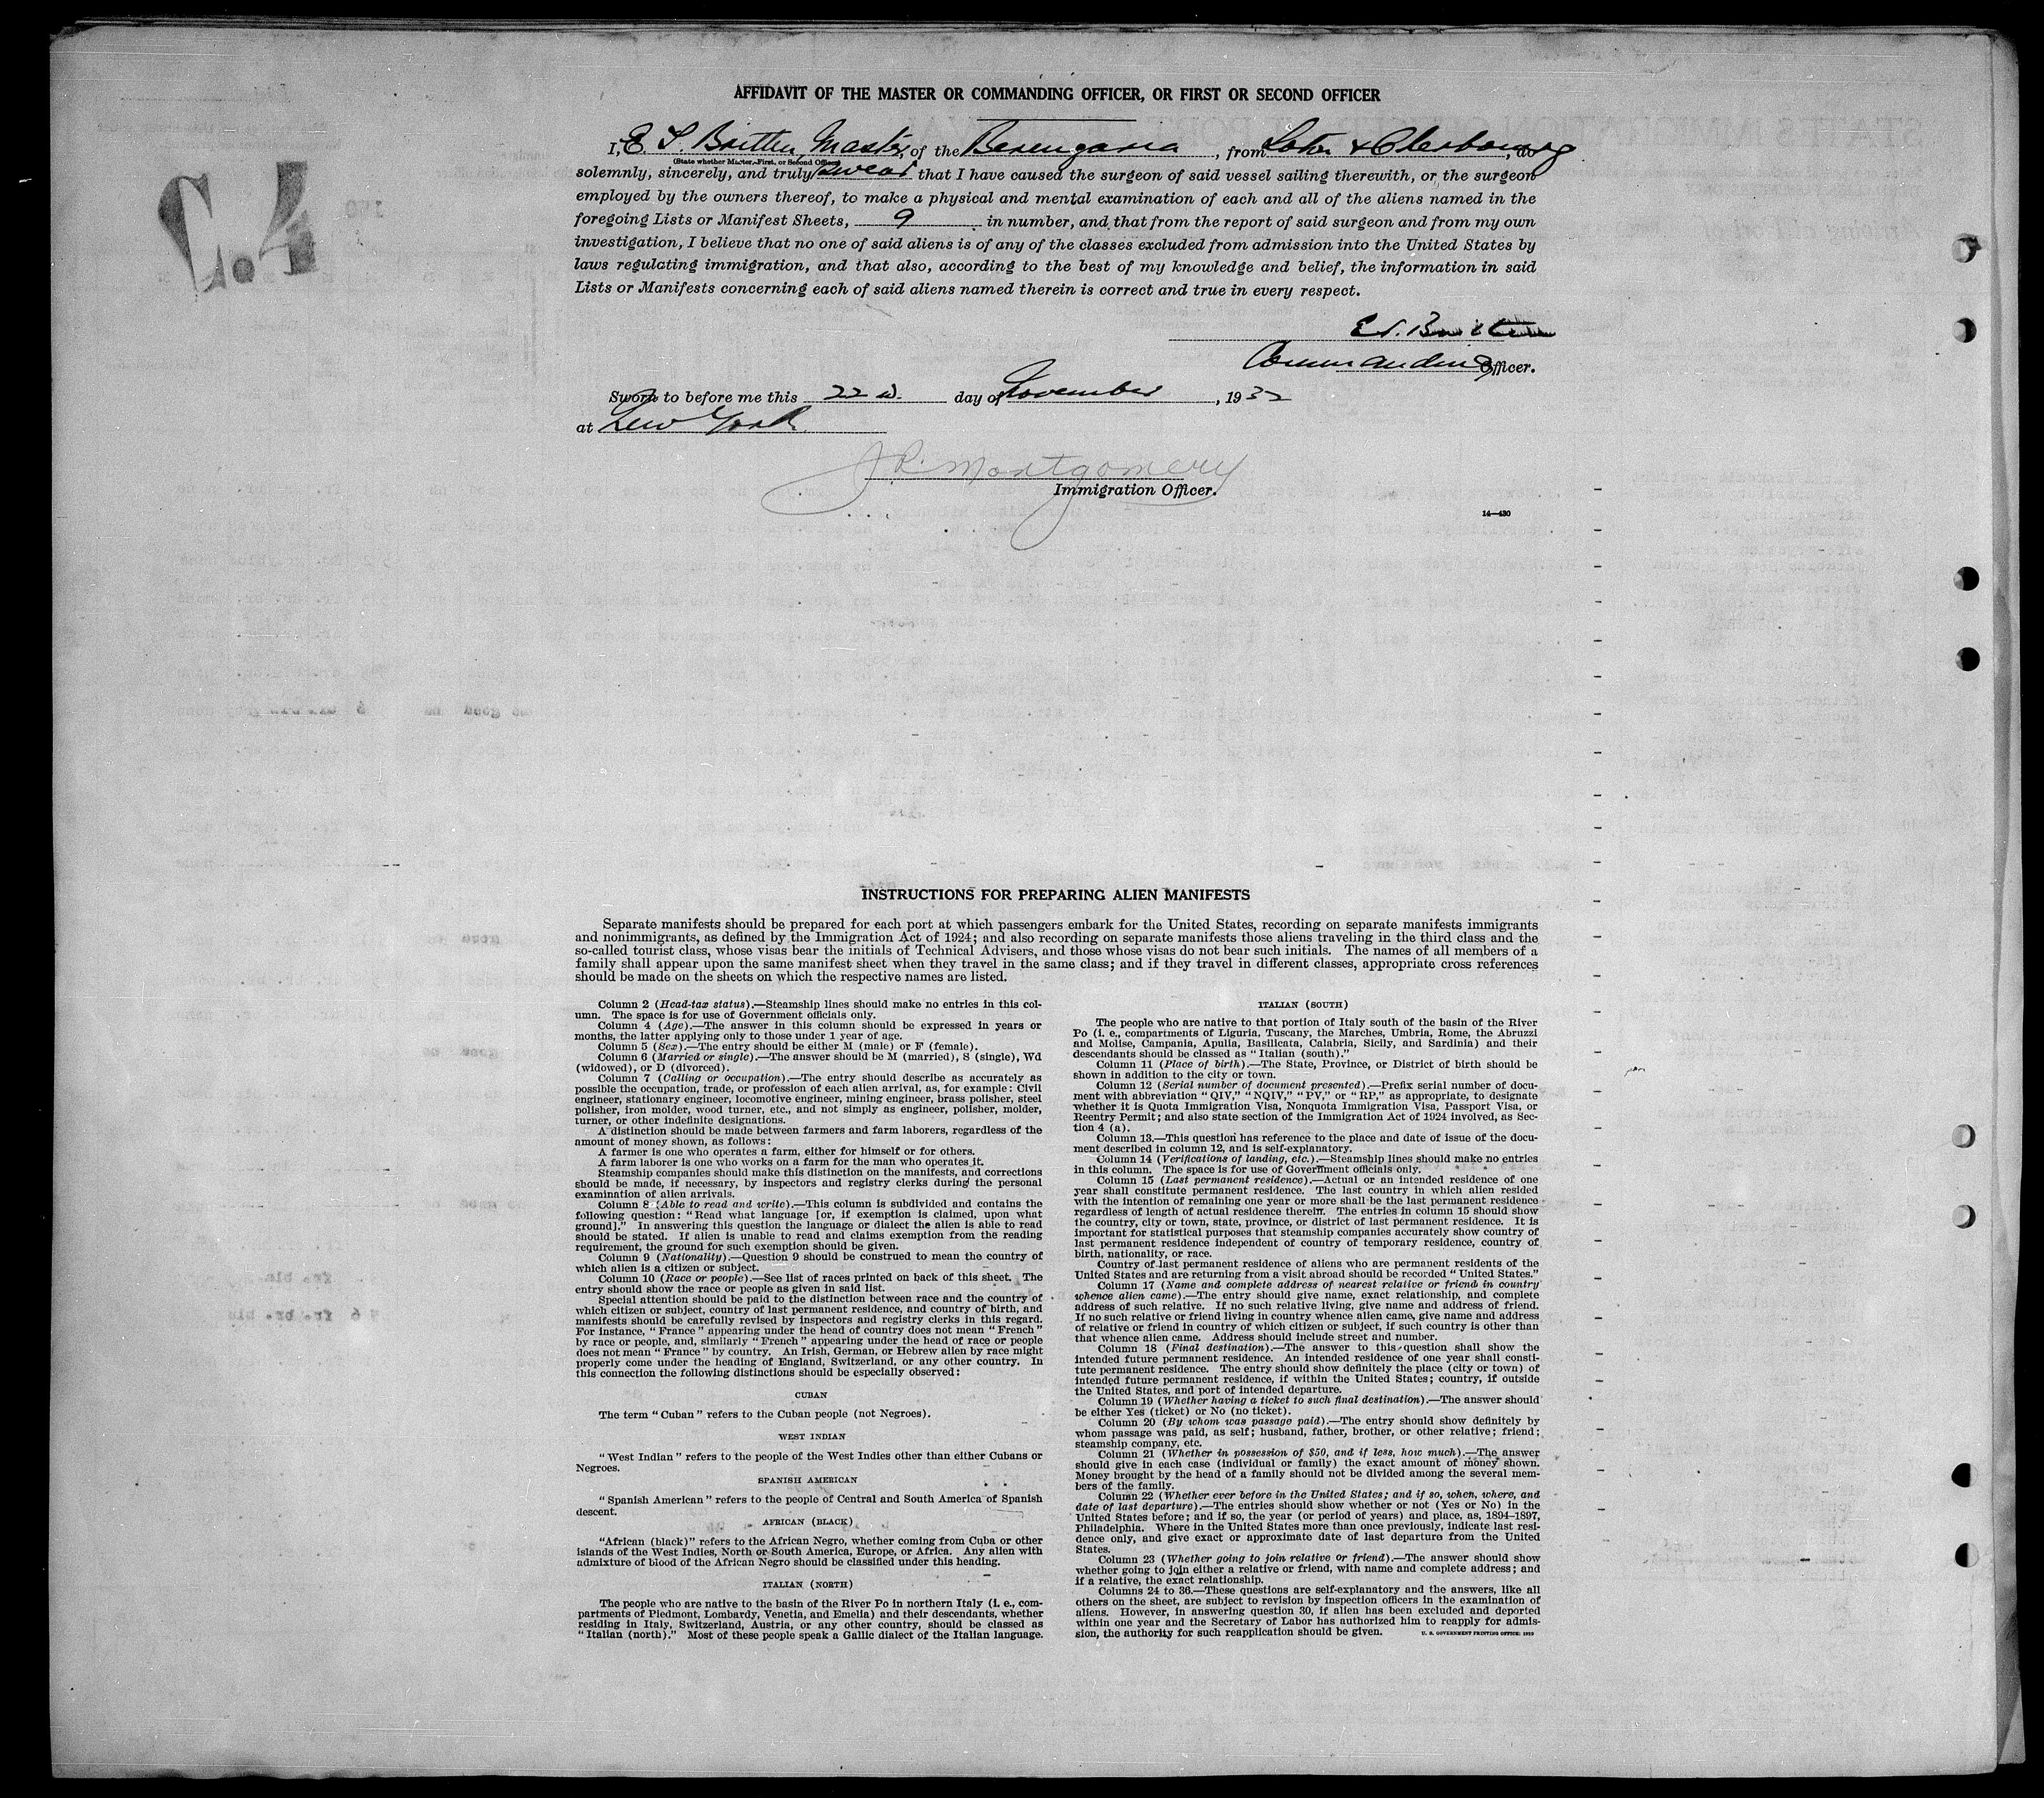 AFFIDAVIT OF THE MASTER OR COMMANDING OFFICER, OR FIRST OR SECOND OFFICER
C.4
I, E. T. Britten, Master, of the Berengaria, from Soton & Cherbourg, do
(State whether Master, First, or Second Officer)
solemnly, sincerely, and truly swear that I have caused the surgeon of said vessel sailing therewith, or the surgeon
employed by the owners thereof, to make a physical and mental examination of each and all of the aliens named in the
foregoing Lists or Manifest Sheets, 9 in number, and that from the report of said surgeon and from my own
investigation, I believe that no one of said aliens is of any of the classes excluded from admission into the United States by
laws regulating immigration, and that also, according to the best of my knowledge and belief, the information in said
Lists or Manifests concerning each of said aliens named therein is correct and true in every respect.
E. T. Britten
Commanding Officer.
Sworn to before me this 22 d. day of November, 1932
at New York
J R. Montgomery
Immigration Officer.
14—430
INSTRUCTIONS FOR PREPARING ALIEN MANIFESTS
Separate manifests should be prepared for each port at which passengers embark for the United States, recording on separate manifests immigrants
and nonimmigrants, as defined by the Immigration Act of 1924; and also recording on separate manifests those aliens traveling in the third class and the
so-called tourist class, whose visas bear the initials of Technical Advisers, and those whose visas do not bear such initials. The names of all members of a
family shall appear upon the same manifest sheet when they travel in the same class; and if they travel in different classes, appropriate cross references
should be made on the sheets on which the respective names are listed.
Column 2 (Head-tax status).—Steamship lines should make no entries in this col-
umn. The space is for use of Government officials only.
Column 4 (Age).—The answer in this column should be expressed in years or
months, the latter applying only to those under 1 year of age.
Column 5 (Sex).—The entry should be either M (male) or F (female).
Column 6 (Married or single).—The answer should be M (married), S (single), Wd
(widowed), or D (divorced).
Column 7 (Calling or occupation).—The entry should describe as accurately as
possible the occupation, trade, or profession of each alien arrival, as, for example: Civil
engineer, stationary engineer, locomotive engineer, mining engineer, brass polisher, steel
polisher, iron molder, wood turner, etc., and not simply as engineer, polisher, molder,
turner, or other indefinite designations.
A distinction should be made between farmers and farm laborers, regardless of the
amount of money shown, as follows:
A farmer is one who operates a farm, either for himself or for others.
A farm laborer is one who works on a farm for the man who operates it.
Steamship companies should make this distinction on the manifests, and corrections
should be made, if necessary, by inspectors and registry clerks during the personal
examination of alien arrivals.
Column 8 (Able to read and write).—This column is subdivided and contains the
following question: "Read what language [or, if exemption is claimed, upon what
ground]." In answering this question the language or dialect the alien is able to read
should be stated. If alien is unable to read and claims exemption from the reading
requirement, the ground for such exemption should be given.
Column 9 (Nationality).—Question 9 should be construed to mean the country of
which alien is a citizen or subject.
Column 10 (Race or people).—See list of races printed on back of this sheet. The
entry should show the race or people as given in said list.
Special attention should be paid to the distinction between race and the country of
which citizen or subject, country of last permanent residence, and country of birth, and
manifests should be carefully revised by inspectors and registry clerks in this regard.
For instance, "France" appearing under the head of country does not mean "French"
by race or people, and, similarly "French" appearing under the head of race or people
does not mean "France" by country. An Irish, German, or Hebrew alien by race might
properly come under the heading of England, Switzerland, or any other country. In
this connection the following distinctions should be especially observed:
CUBAN
The term "Cuban" refers to the Cuban people (not Negroes).
WEST INDIAN
"West Indian" refers to the people of the West Indies other than either Cubans or
Negroes.
SPANISH AMERICAN
"Spanish American" refers to the people of Central and South America of Spanish
descent.
AFRICAN (BLACK)
"African (black)" refers to the African Negro, whether coming from Cuba or other
islands of the West Indies, North or South America, Europe, or Africa. Any alien with
admixture of blood of the African Negro should be classified under this heading.
ITALIAN (NORTH)
The people who are native to the basin of the River Po in northern Italy (i. e., com-
partments of Piedmont, Lombardy, Venetia, and Emelia) and their descendants, whether
residing in Italy, Switzerland, Austria, or any other country, should be classed as
"Italian (north)." Most of these people speak a Gallic dialect of the Italian language.
ITALIAN (SOUTH)
The people who are native to that portion of Italy south of the basin of the River
Po (i. e., compartments of Liguria, Tuscany, the Marches, Umbria, Rome, the Abruzzi
and Molise, Campania, Apulia, Basilicata, Calabria, Sicily, and Sardinia) and their
descendants should be classed as "Italian (south)."
Column 11 (Place of birth).—The State, Province, or District of birth should be
shown in addition to the city or town.
Column 12 (Serial number of document presented).—Prefix serial number of docu-
ment with abbreviation "QIV," "NQIV," "PV," or "RP," as appropriate, to designate
whether it is Quota Immigration Visa, Nonquota Immigration Visa, Passport Visa, or
Reentry Permit; and also state section of the Immigration Act of 1924 involved, as Sec-
tion 4 (a).
Column 13.—This question has reference to the place and date of issue of the docu-
ment described in column 12, and is self-explanatory.
Column 14 (Verifications of landing, etc.).—Steamship lines should make no entries
in this column. The space is for use of Government officials only.
Column 15 (Last permanent residence).—Actual or an intended residence of one
year shall constitute permanent residence. The last country in which alien resided
with the intention of remaining one year or more shall be the last permanent residence
regardless of length of actual residence therein. The entries in column 15 should show
the country, city or town, state, province, or district of last permanent residence. It is
important for statistical purposes that steamship companies accurately show country of
last permanent residence independent of country of temporary residence, country of
birth, nationality, or race.
Country of last permanent residence of aliens who are permanent residents of the
United States and are returning from a visit abroad should be recorded "United States."
Column 17 (Name and complete address of nearest relative or friend in country
whence alien came).—The entry should give name, exact relationship, and complete
address of such relative. If no such relative living, give name and address of friend.
If no such relative or friend living in country whence alien came, give name and address
of relative or friend in country of which citizen or subject, if such country is other than
that whence alien came. Address should include street and number.
Column 18 (Final destination).—The answer to this question shall show the
intended future permanent residence. An intended residence of one year shall consti-
tute permanent residence. The entry should show definitely the place (city or town) of
intended future permanent residence, if within the United States; country, if outside
the United States, and port of intended departure.
Column 19 (Whether having a ticket to such final destination).—The answer should
be either Yes (ticket) or No (no ticket).
Column 20 (By whom was passage paid).—The entry should show definitely by
whom passage was paid, as self; husband, father, brother, or other relative; friend;
steamship company, etc.
Column 21 (Whether in possession of $50, and if less, how much).—The answer
should give in each case (individual or family) the exact amount of money shown.
Money brought by the head of a family should not be divided among the several mem-
bers of the family.
Column 22 (Whether ever before in the United States; and if so, when, where, and
date of last departure).—The entries should show whether or not (Yes or No) in the
United States before; and if so, the year (or period of years) and place, as, 1894–1897,
Philadelphia. Where in the United States more than once previously, indicate last resi-
dence only, and give exact or approximate date of last departure from the United
States.
Column 23 (Whether going to join relative or friend).—The answer should show
whether going to join either a relative or friend, with name and complete address; and
if a relative, the exact relationship.
Columns 24 to 36.—These questions are self-explanatory and the answers, like all
others on the sheet, are subject to revision by inspection officers in the examination of
aliens. However, in answering question 30, if alien has been excluded and deported
within one year and the Secretary of Labor has authorized him to reapply for admis-
sion, the authority for such reapplication should be given.
U. S. GOVERNMENT PRINTING OFFICE: